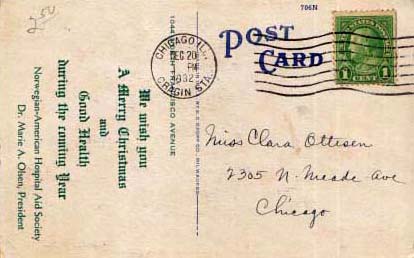 706N
POST
CARD
CHICAGO, ILL.
DEC 20
PM
1932
CRAGIN STA.
1 CENT 1
Miss Clara Ottesen
2305 N. Meade Ave
Chicago
We wish you
A Merry Christmas
and
Good Health
during the coming Year
Norwegian-American Hospital Aid Society
Dr. Marie A. Olsen, President